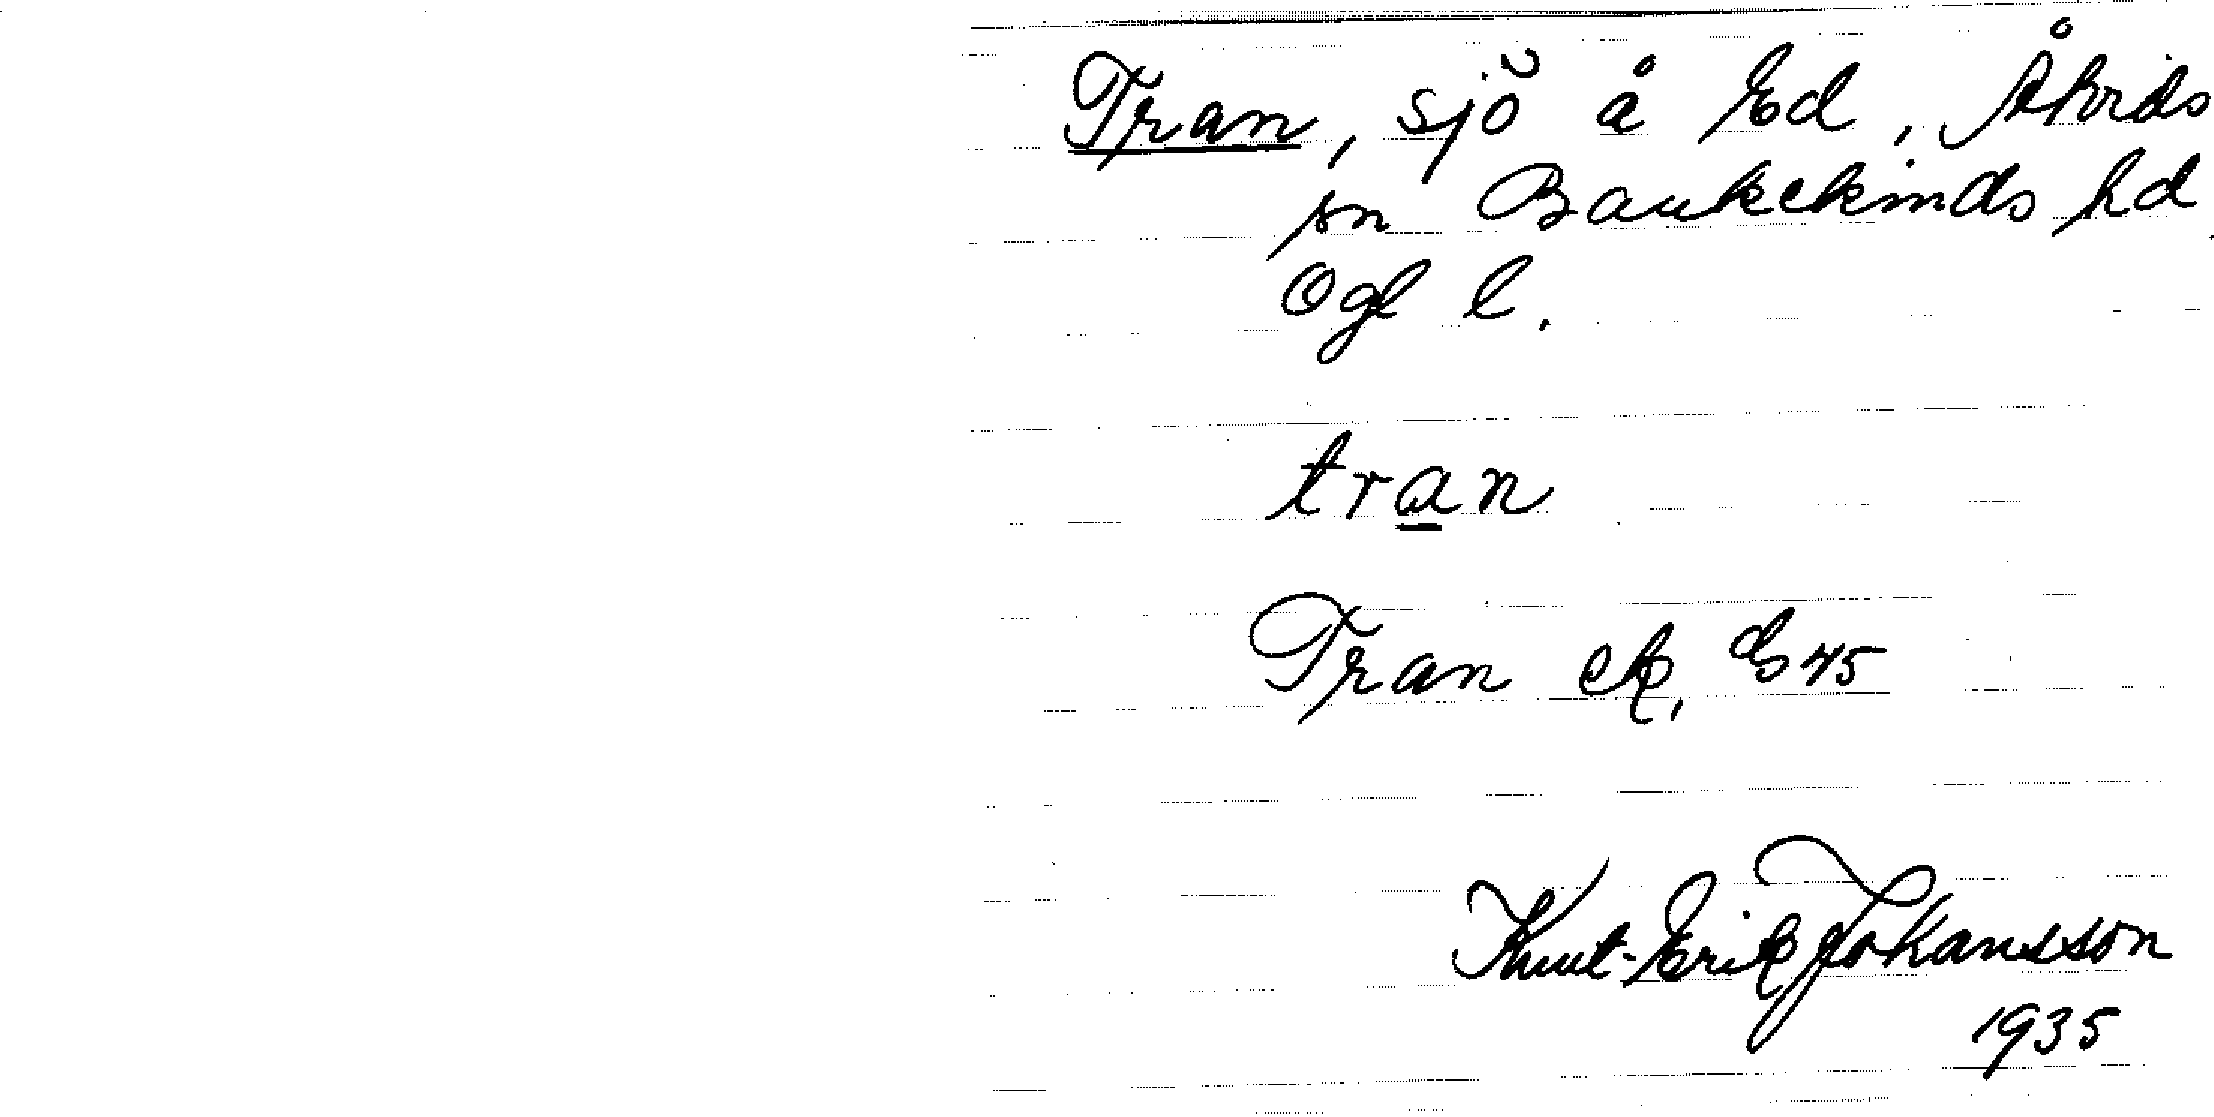 Tran, sjö å Ed, Åtvids
sn Bankekinds hd
Ögl l.
tran
Tran ek, ds 45
Knut-Erik Johansson
1935